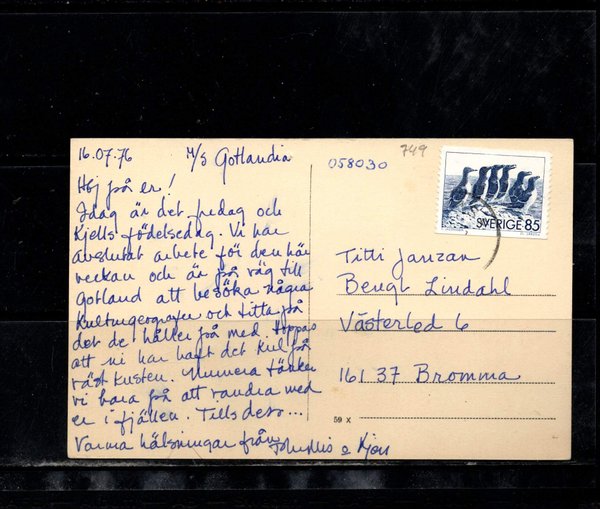 16.07.76 M/S Gotlandia
Hej på er!
Idag är det fredag och
Kjells födelsedag. Vi har
avslutat arbete för den här
veckan och är på väg till
Gotland att besöka några
Kulturgeografer och titta på
det de håller på med. Hoppas
att ni har haft det kul på
västkusten. Numera tänker
vi bara på att vandra med
er i fjällen. Tills dess...
Varma hälsningar från
& Kjell
058030
749
SVERIGE 85
Titti Janzan
Bengt Lindahl
Västerled 6
161 37 Bromma
59 X